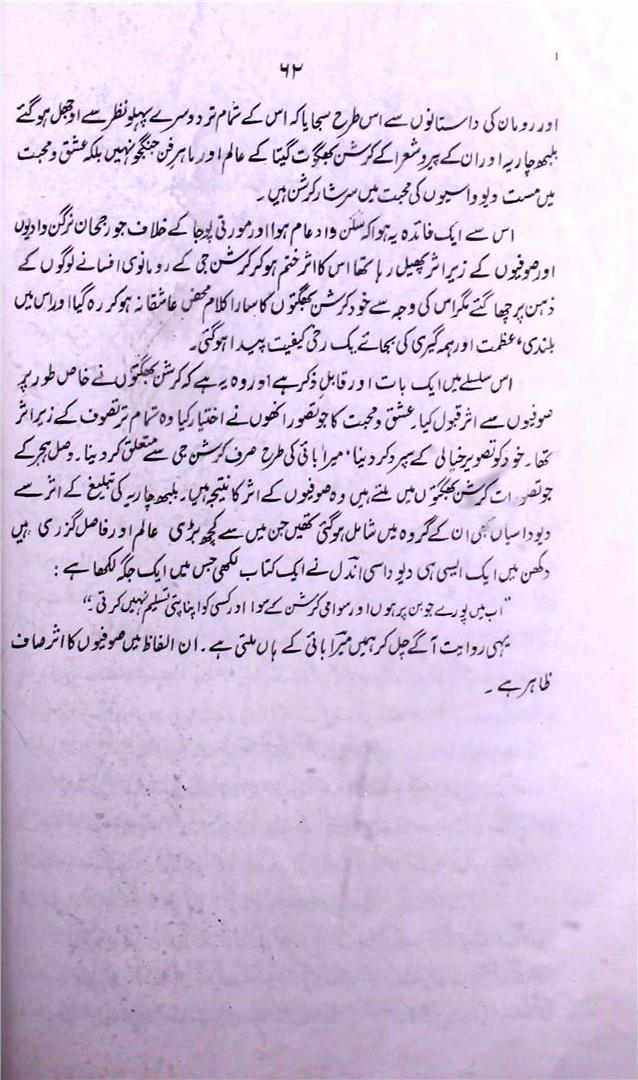 ۶۲
اور رومان کی داستانوں سے اس طرح سجایا کہ اس کے تمام تر دوسرے پہلو نظر سے اوجھل ہو گئے
بلبھ چاریہ اور ان کے پیرو شعرا کے کرشن بھگوت گیتا کے عالم اور ماہر فن جنگجو نہیں بلکہ عشق و محبت
میں مست دیوداسیوں کی محبت میں سرشار کرشن ہیں۔
اس سے ایک فائدہ یہ ہوا کہ سگن واد عام ہوا اور مورتی پوجا کے خلاف جو رجحان نرگن وادیوں
اور صوفیوں کے زیر اثر پھیل رہا تھا اس کا اثر ختم ہو کر کرشن جی کے رومانوی افسانے لوگوں کے
ذہن پر چھا گئے مگر اس کی وجہ سے خود کرشن بھگتوں کا سارا کلام محض عاشقانہ ہو کر رہ گیا اور اس میں
بلندی، عظمت اور ہمہ گیری کی بجائے یک رخی کیفیت پیدا ہو گئی۔
اس سلسلے میں ایک بات اور قابل ذکر ہے اور وہ یہ ہے کہ کرشن بھگتوں نے خاص طور پر
صوفیوں سے اثر قبول کیا۔ عشق و محبت کا جو تصور انھوں نے اختیار کیا وہ تمام تر تصوف کے زیر اثر
تھا۔ خود کو تصویر خیالی کے سپرد کر دینا، میرا بائی کی طرح صرف کرشن جی سے متعلق کر دینا۔ وصل ہجر کے
جو تصورات کرشن بھگتوں میں ملتے ہیں وہ صوفیوں کے اثر کا نتیجہ ہیں۔ بلبھ چاریہ کی تبلیغ کے اثر سے
دیوداسیاں بھی ان کے گروہ میں شامل ہو گئی تھیں جن میں سے کچھ بڑی عالم اور فاضل گزری ہیں
دکھن میں ایک ایسی ہی دیوداسی اندل نے ایک کتاب لکھی جس میں ایک جگہ لکھا ہے:
"اب میں پورے جوبن پر ہوں اور سوامی کرشن کے سوا اور کسی کو اپنا پتی تسلیم نہیں کرتی۔"
یہی روایت آگے چل کر ہمیں میرا بائی کے ہاں ملتی ہے۔ ان الفاظ میں صوفیوں کا اثر صاف
ظاہر ہے۔